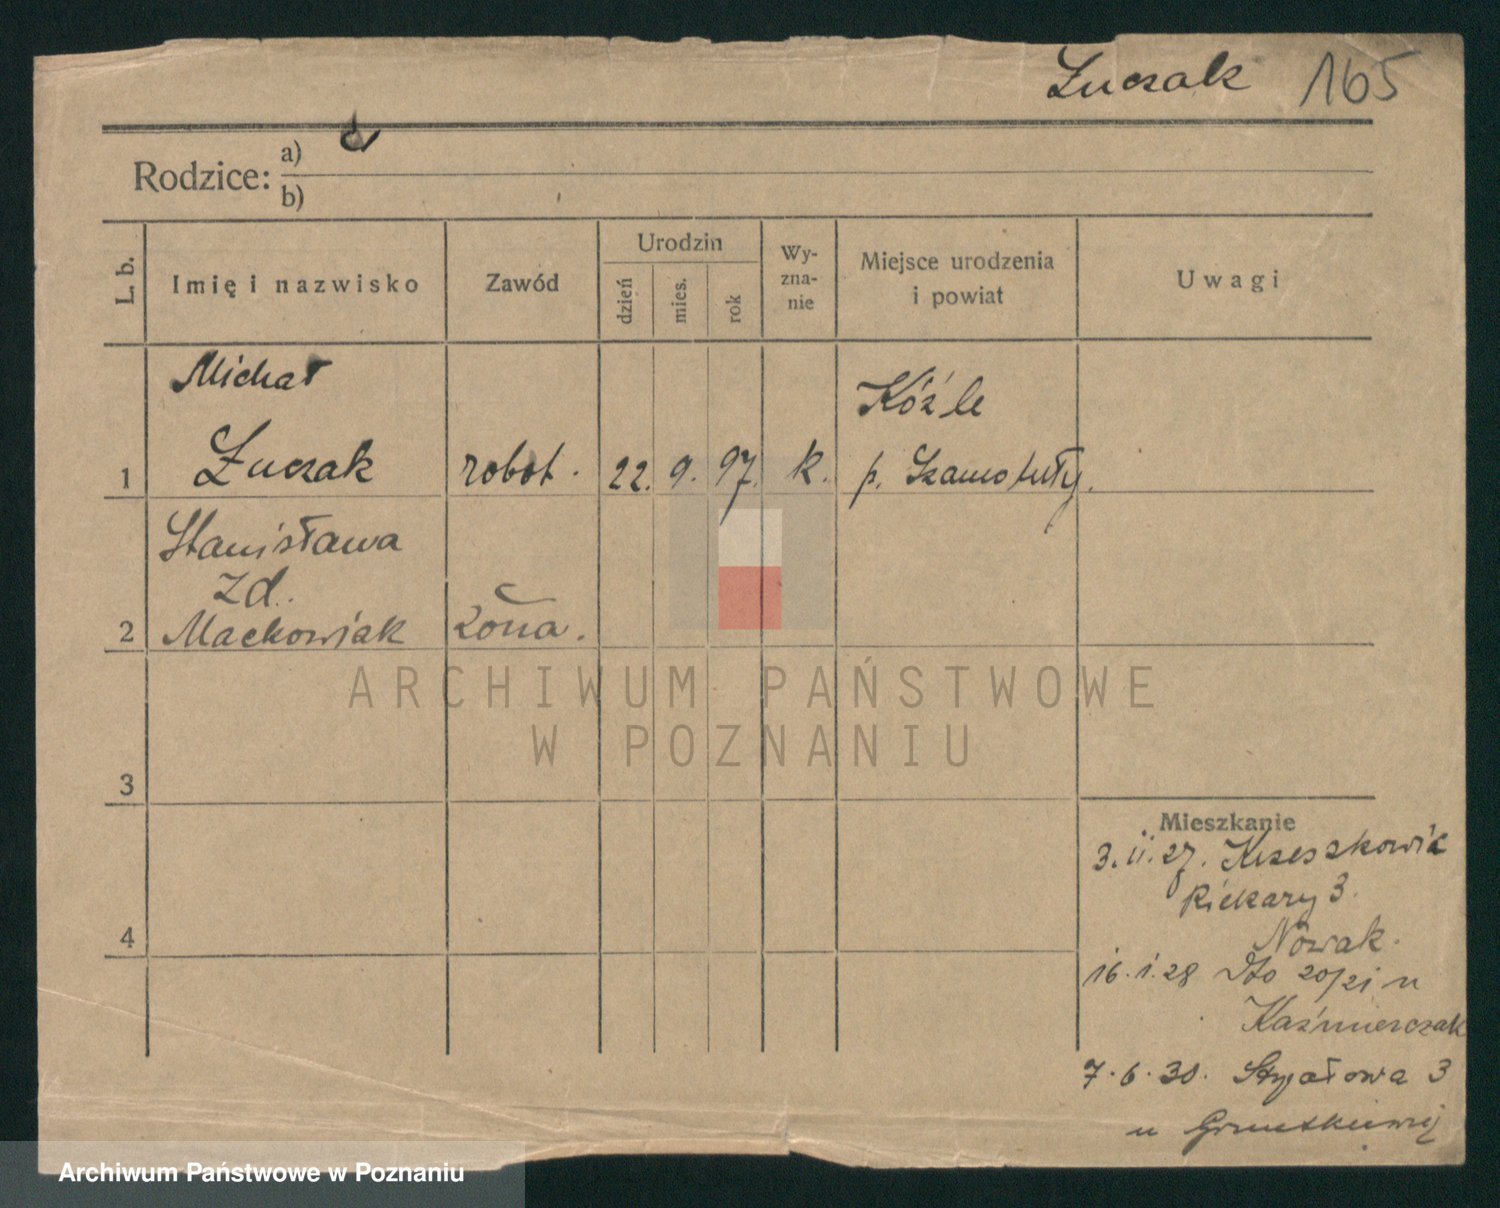 Łuczak 165
Rodzice: a)
b)
L. b.
Imię i nazwisko
Zawód
Urodzin
dzień
mies.
rok
Wy-
zna-
nie
Miejsce urodzenia
i powiat
Uwagi
Michał
Łuczak
1
robot.
22. 9. 97.
k.
Koźle
p. Szamotuły.
Stanisława
zd.
2 Maćkowiak
żona.
3
4
Mieszkanie
3.11.27.
Piekary 3.
Nowak.
16.1.28 Dto 20/21 u
Kaźmierczak
7.6.30. 3
u
ARCHIWUM PAŃSTWOWE
W POZNANIU
Archiwum Państwowe w Poznaniu